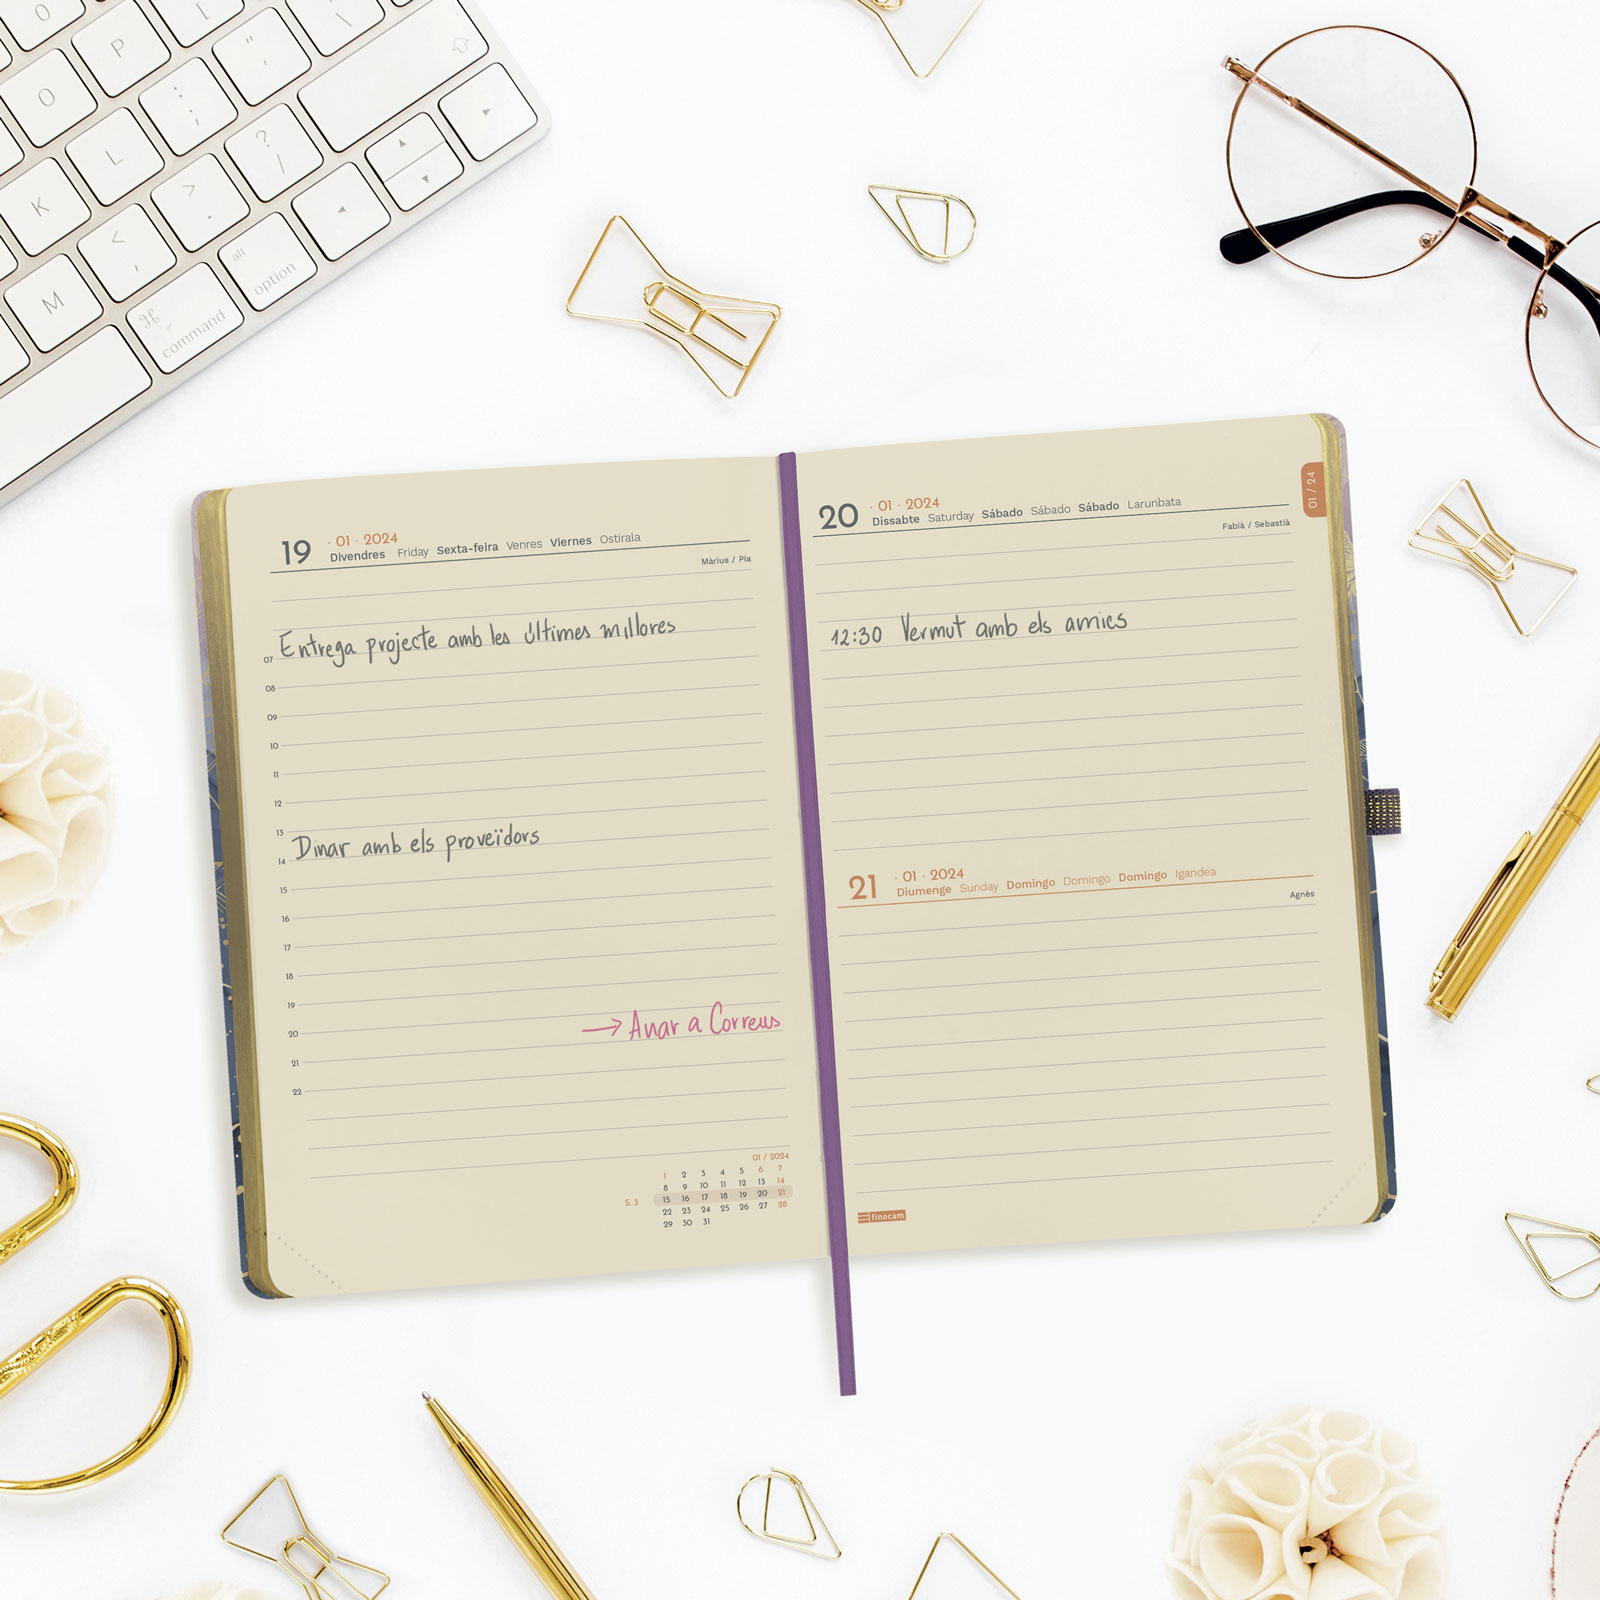 P
O
L
K
M
? /
> .
< ,
: ;
" '
alt
option
⌘
command
19 · 01 · 2024
Divendres Friday Sexta-feira Venres Viernes Ostirala
Màrius / Pia
Entrega projecte amb les últimes millores
07
08
09
10
11
12
13
Dinar amb els proveïdors
14
15
16
17
18
19
20 → Anar a Correus
21
22
01 / 2024
1 2 3 4 5 6 7
8 9 10 11 12 13 14
S. 3 15 16 17 18 19 20 21
22 23 24 25 26 27 28
29 30 31
20 · 01 · 2024
Dissabte Saturday Sábado Sábado Sábado Larunbata
Fabià / Sebastià
01 / 24
12:30 Vermut amb els amics
21 · 01 · 2024
Diumenge Sunday Domingo Domingo Domingo Igandea
Agnès
finocam